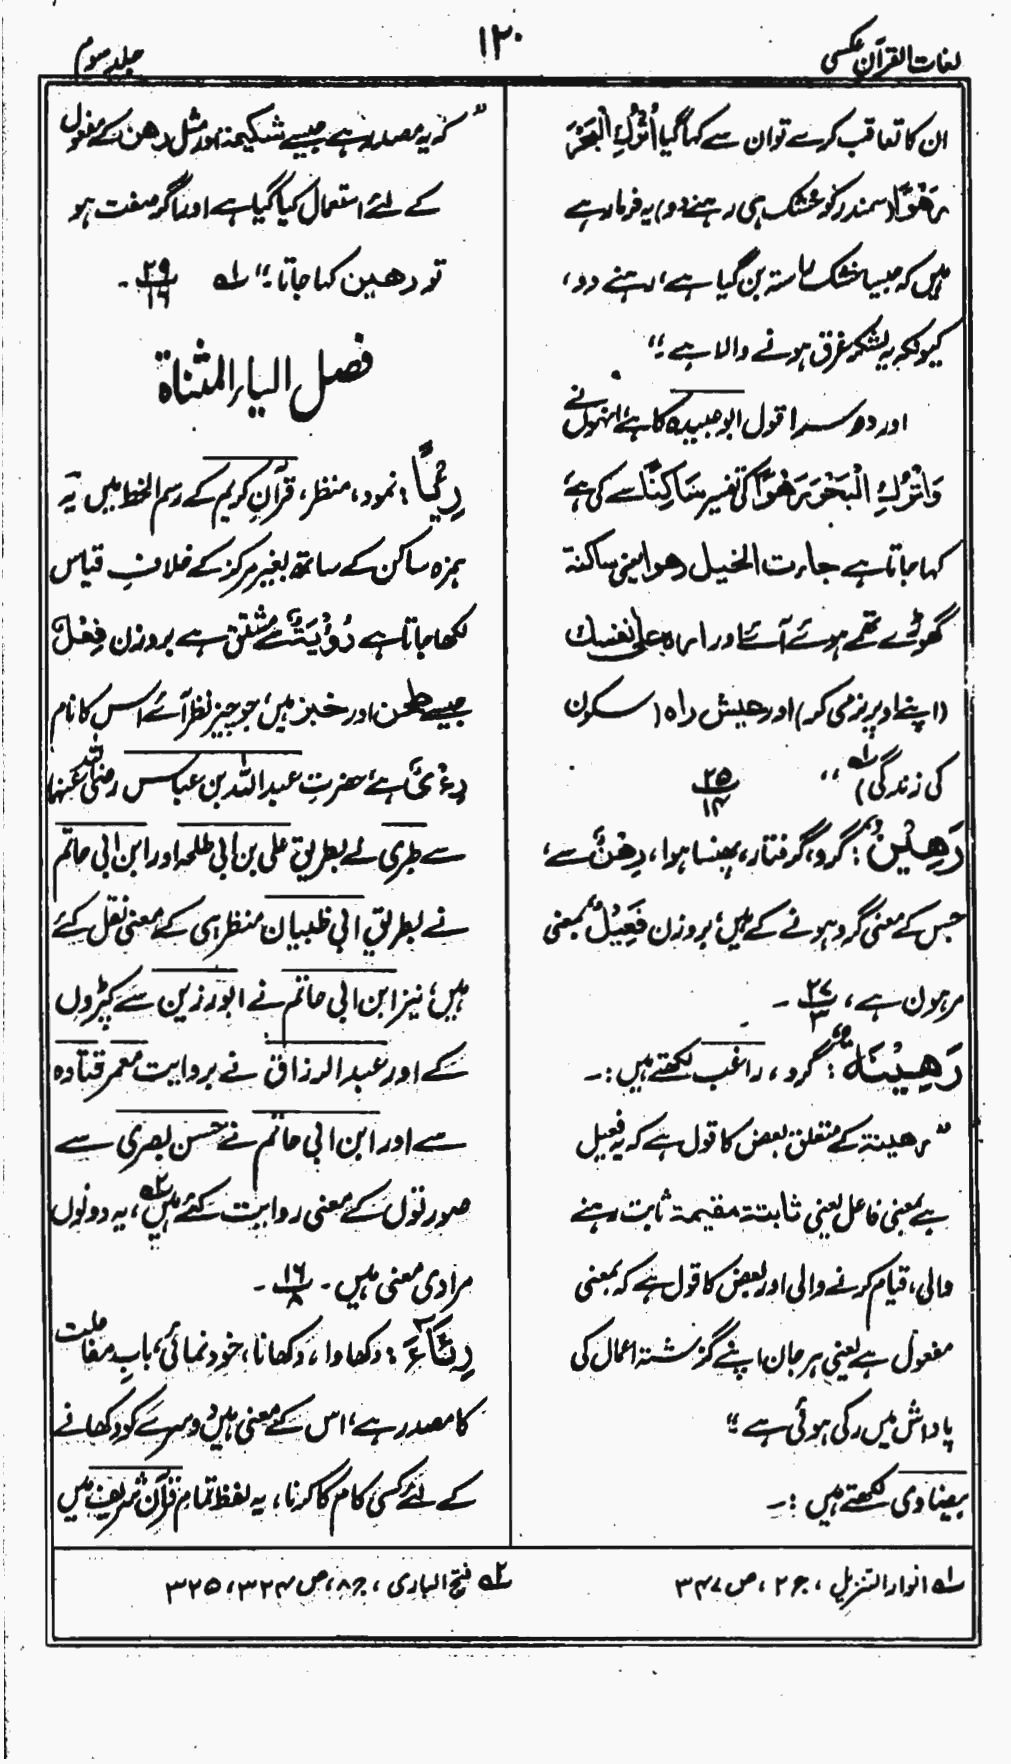 لغات القرآن عکسی
۱۲۰
جلد سوم
ان کا تعاقب کرے تو ان سے کہا گیا اُتْرُكِ الْبَحْرَ
رَهْوًا (سمندر کو خشک ہی رہنے دو) یہ فرما رہے
ہیں کہ جیسا خشک راستہ بن گیا ہے، رہنے دو،
کیونکہ یہ لشکر غرق ہونے والا ہے ۔"
اور دوسرا قول ابو عبیدہ کا ہے، انہوں نے
وَاتْرُكِ الْبَحْرَ رَهْوًا کی تفسیر سَاكِنًا سے کی ہے،
کہا جاتا ہے جاءت الخیل رھوا یعنی ساکنۃ
گھوڑے تھمے ہوئے آئے اور ارہ علی نفسك
(اپنے اوپر نرمی کر) اور عیش راہ (سکون
کی زندگی) ۱ے " ۲۵/۱۴
رَهِیْنٌ: گرو، گرفتار، پھنسا ہوا، رِھْنٌ سے،
جس کے معنی گرو ہونے کے ہیں، بروزن فَعِیْلٌ بمعنی
مرہون ہے، ۲۷/۳ ۔
رَهِیْنَةٌ: گرو، راغب لکھتے ہیں :۔
"رھینۃ کے متعلق بعض کا قول ہے کہ یہ فعیل
ہے بمعنی فاعل یعنی ثابتۃ مقیمۃ ثابت رہنے
والی، قیام کرنے والی اور بعض کا قول ہے کہ بمعنی
مفعول ہے یعنی ہر جان اپنے گزشتہ اعمال کی
پاداش میں رکی ہوئی ہے ۔"
بیضاوی لکھتے ہیں :۔
"کہ یہ مصدر ہے جیسے شکیمۃ اور مثل رھن کے مفعول
کے لئے استعمال کیا گیا ہے اور اگر صفت ہو
تو رھین کہا جاتا ۔" ۱ے ۲۹/۱۶ ۔
فصل الیاء المثناۃ
رِئْیًا: نمود، منظر، قرآن کریم کے رسم الخط میں یہ
ہمزہ ساکن کے ساتھ بغیر مرکز کے خلاف قیاس
لکھا جاتا ہے رُؤْیَتٌ سے مشتق ہے بروزن فِعْلٌ
جیسے طحن اور خبز میں، جو چیز نظر آئے اس کا نام
رِءْیٌ ہے، حضرت عبد اللہ بن عباس رضی اللہ عنہما
سے طبری نے بطریق علی بن ابی طلحہ اور ابن ابی حاتم
نے بطریق ابی ظبیان منظر ہی کے معنی نقل کئے
ہیں، نیز ابن ابی حاتم نے ابو رزین سے کپڑوں
کے اور عبد الرزاق نے بروایت معمر قتادہ
سے اور ابن ابی حاتم نے حسن بصری سے
صورتوں کے معنی روایت کئے ہیں ۲ے، یہ دونوں
مرادی معنی ہیں ۔ ۱۶/۸ ۔
رِئَآءَ: دکھاوا، دکھانا، خود نمائی، باب مفاعلت
کا مصدر ہے، اس کے معنی ہیں دوسرے کو دکھانے
کے لئے کسی کام کا کرنا، یہ لفظ تمام قرآن شریف میں
۱ے انوار التنزیل، ج ۲، ص ۳۴۷
۲ے فتح الباری، ج ۸، ص ۳۲۴، ۳۲۵